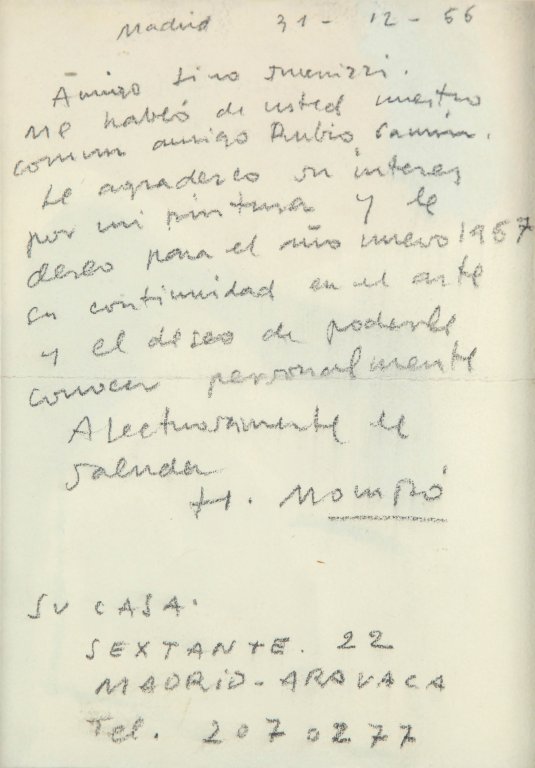 Madrid 31-12-66
Amigo Lino
me habló de usted nuestro
comun amigo Rubio Camín.
Le agradezco su interes
por mi pintura y le
deseo para el año nuevo 1967
su continuidad en el arte
y el deseo de poderle
conocer personalmente
Afectuosamente le
saluda
H. Mompó
SU CASA.
SEXTANTE. 22
MADRID-ARAVACA
Tel. 2070277